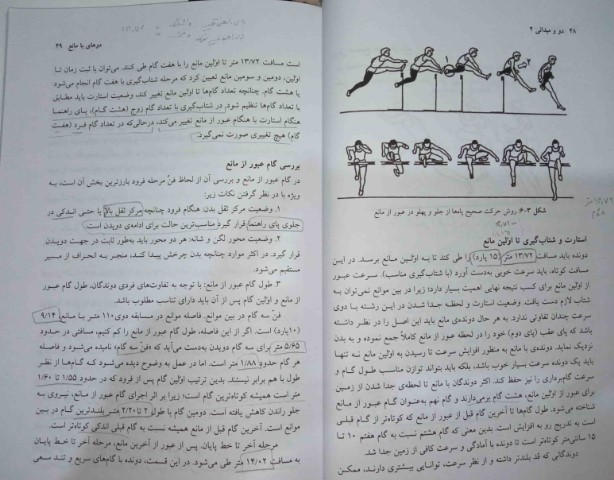 ۴۸ دو و میدانی ۲
شکل ۳-۶: روش حرکت صحیح پاها از جلو و پهلو در عبور از مانع
استارت و شتاب‌گیری تا اولین مانع
دونده باید مسافت ۱۳/۷۲ متر (۱۵ یارد) را طی کند تا به اولین مانع برسد. در این
مسافت کوتاه، باید سرعت خوبی به‌دست آورد (با شتاب‌گیری مناسب). سرعت عبور
از اولین مانع برای کسب نتیجه نهایی اهمیت بسیار دارد؛ زیرا در بین موانع نمی‌توان به
شتاب لازم دست یافت. وضعیت استارت و لحظه جدا شدن در این رشته با دوی
سرعت چندان تفاوتی ندارد. به هر حال دونده‌ی مانع باید این اصل را در نظر داشته
باشد که پای عقب (پای دوم) خود را در لحظه عبور از مانع کاملاً جمع نموده و به بدن
نزدیک نماید. دونده‌ی با مانع به منظور افزایش سرعت تا رسیدن به اولین مانع نه تنها
باید یک دونده سرعت بسیار خوب باشد، بلکه باید بتواند توازن مناسب طول گام و
سرعت گام‌برداری را نیز حفظ کند. اکثر دوندگان با مانع تا لحظه‌ی جدا شدن از زمین
برای عبور از اولین مانع، هشت گام برمی‌دارند و گام نهم به‌عنوان گام عبور از مانع
شناخته می‌شود. طول گام‌ها تا آخرین گام قبل از عبور از مانع که کوتاه‌تر از گام قبلی
است به تدریج رو به افزایش است. بدین معنی که گام هشتم نسبت به گام هفتم ۱۰ تا
۱۵ سانتی‌متر کوتاه‌تر است تا دونده با آمادگی و سرعت کافی از زمین جدا شود.
دوندگانی که قد بلندتر داشته و از نظر سرعت، توانایی بیشتری دارند، ممکن
دوهای با مانع ۴۹
است مسافت ۱۳/۷۲ متر تا اولین مانع را با هفت گام طی کنند. می‌توان با ثبت زمان تا
اولین، دومین و سومین مانع تعیین کرد که مرحله شتاب‌گیری با هفت گام انجام می‌شود
یا هشت گام. چنانچه تعداد گام‌ها تا اولین مانع تغییر کند، وضعیت استارت باید مطابق
با تعداد گام‌ها تنظیم شود. در شتاب‌گیری با تعداد گام زوج (هشت گام)، پای راهنما
هنگام استارت با هنگام عبور از مانع تغییر می‌کند، درحالی‌که در تعداد گام فرد (هفت
گام) هیچ تغییری صورت نمی‌گیرد.
بررسی گام عبور از مانع
در گام عبور از مانع و بررسی آن از لحاظ فنّ مرحله فرود بارزترین بخش آن است، به
ویژه با در نظر گرفتن نکات زیر:
۱. وضعیت مرکز ثقل بدن: هنگام فرود چنانچه مرکز ثقل بالا یا حتی اندکی در
جلوی پای راهنما قرار گیرد مناسب‌ترین حالت برای ادامه‌ی دویدن است.
۲. وضعیت محور لگن و شانه: هر دو محور باید به‌طور ثابت در جهت دویدن
قرار گیرد. در اکثر موارد چنانچه بدن چرخش پیدا کند، منجر به انحراف از مسیر
مستقیم می‌شود.
۳. طول گام عبور از مانع: با توجه به تفاوت‌های فردی دوندگان، طول گام عبور
از مانع و اولین گام پس از آن باید دارای تناسب مطلوب باشد.
فنّ سه گام در بین موانع. فاصله موانع در مسابقه دوی ۱۱۰ متر با مانع، ۹/۱۴
(۱۰یارد) است. اگر از این فاصله، طول گام عبور از مانع را کم کنیم، مسافتی در حدود
۵/۶۵ متر برای سه گام دویدن به‌دست می‌آید که «فنّ سه گام» نامیده می‌شود و فاصله
هر گام حدود ۱/۸۸ متر است. اما در عمل به وضوح دیده می‌شود که گام‌ها از نظر
طول با هم برابر نیستند. بدین ترتیب اولین گام پس از فرود که در حدود ۱/۵۵ تا ۱/۶۰
متر است همیشه کوتاه‌ترین گام است؛ زیرا بر اثر اجرای گام عبور از مانع، نیروی به
جلو راندن کاهش یافته است. دومین گام با طول ۲ تا ۲/۲۰ متر بلندترین گام در بین
موانع است. آخرین گام قبل از مانع همیشه نسبت به گام قبلی اندکی کوتاه‌تر است.
مرحله آخر تا خط پایان. پس از عبور از آخرین مانع، مرحله آخر تا خط پایان
به مسافت ۱۴/۰۲ متر طی می‌شود. در این قسمت، دونده با گام‌های سریع و تند سعی